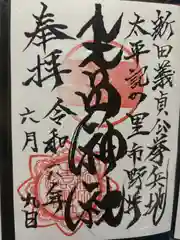 新田義貞公挙兵地
太平記の里市野井
生品神社
奉拝
令和年
六月九日